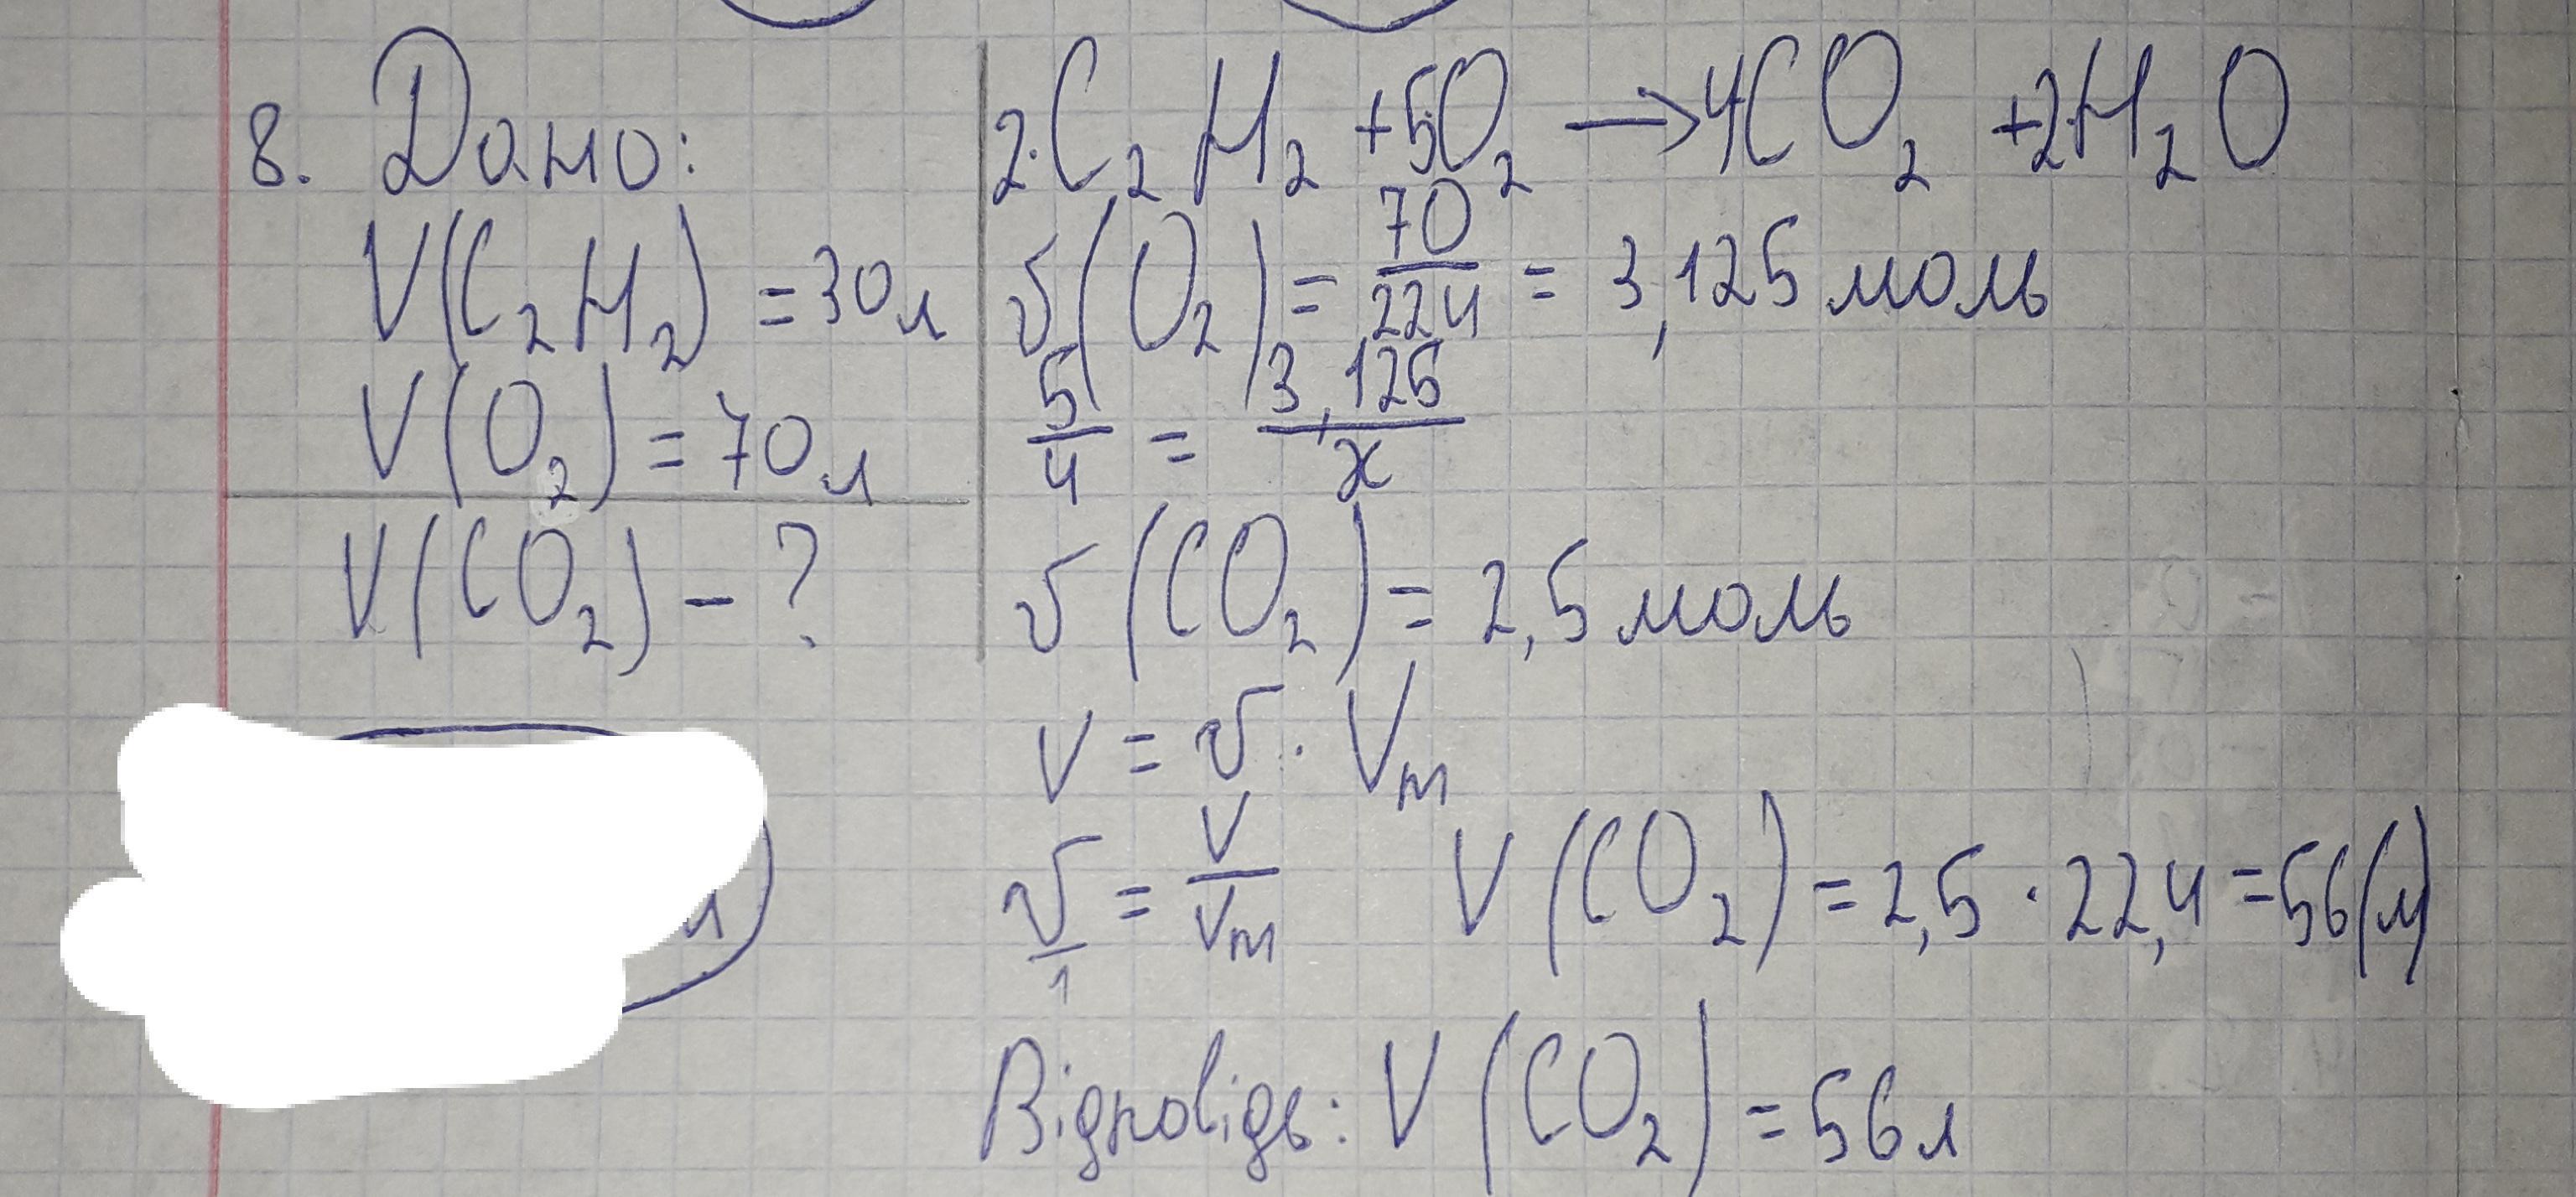 8. Дано:
V(C₂H₂) = 30л
V(O₂) = 70л
V(CO₂) - ?
2C₂H₂ + 5O₂ → 4CO₂ + 2H₂O
ν(O₂) = 70/22,4 = 3,125 моль
5/4 = 3,125/x
ν(CO₂) = 2,5 моль
V = ν · Vm
ν/1 = V/Vm V(CO₂) = 2,5 · 22,4 = 56(л)
Відповідь: V(CO₂) = 56л